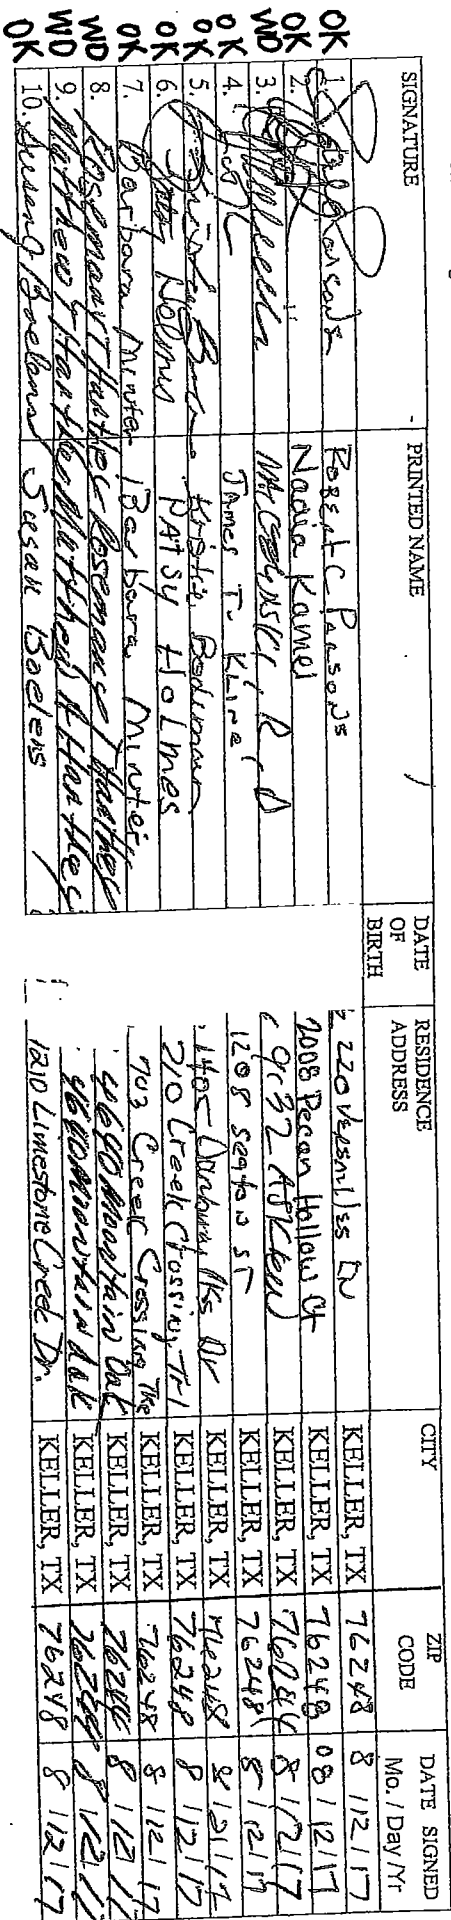 SIGNATURE PRINTED NAME DATE OF BIRTH RESIDENCE ADDRESS CITY ZIP CODE DATE SIGNED Mo. / Day / Yr
OK 1. Robert C Parsons 220 Versailles LN KELLER, TX 76248 8 / 12 / 17
OK 2. Nadia Kamel 2008 Pecan Hollow Ct KELLER, TX 76248 08 / 12 / 17
WD 3. KELLER, TX 8 / 12 / 17
OK 4. James T. Kline 1208 Seaton ST KELLER, TX 76248 8 / 12 / 17
OK 5. Kristin KELLER, TX 76248 8 / 12 / 17
OK 6. Patsy Holmes PATSY HoLmes 210 Creek Crossing Trl KELLER, TX 76248 8 / 12 / 17
OK 7. Barbara Minter Barbara Minter 703 Creek Crossing KELLER, TX 76248 8 / 12 / 17
WD 8. Rosemary T Hanthec Rosemary T Hanthec Mountain Oak KELLER, TX 8 / 12 / 17
WD 9. Matthew Matthew Mountain Oak KELLER, TX 8 / 12 / 17
OK 10. Susan Boelens Susan Boelens 1210 Limestone Creek Dr. KELLER, TX 76248 8 / 12 / 17